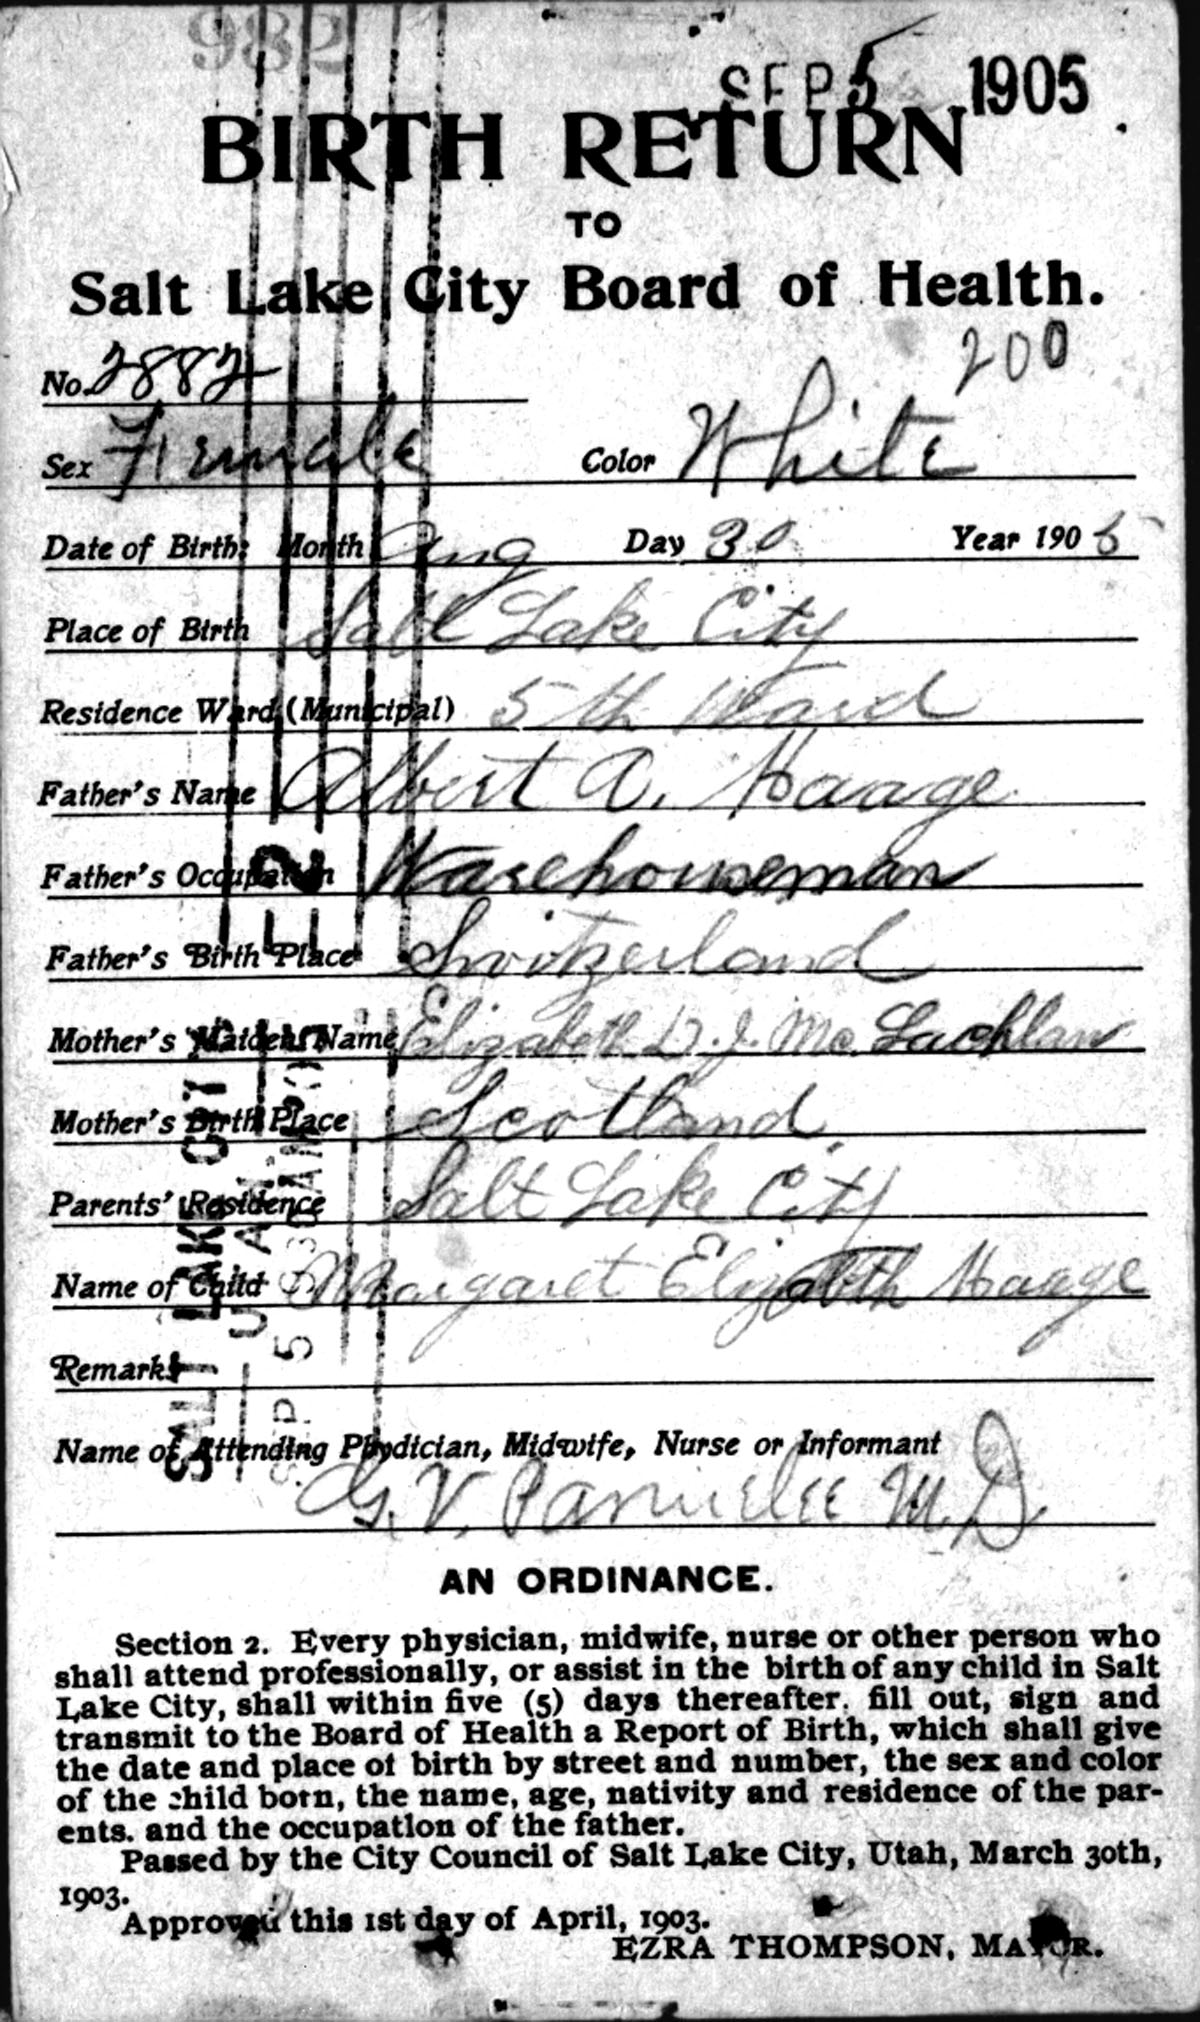 982
SEP 5 1905
BIRTH RETURN
TO
Salt Lake City Board of Health.
200
No. 2882
Sex Female Color White
Date of Birth: Month Aug Day 30 Year 1905
Place of Birth Salt Lake City
Residence Ward (Municipal) 5th Ward
Father's Name Albert A. Haage
Father's Occupation Warehouseman
Father's Birth Place Switzerland
Mother's Maiden Name Elizabeth D. J. Mc Lachlan
Mother's Birth Place Scotland
Parents' Residence Salt Lake City
Name of Child Margaret Elizabeth Haage
Remarks
Name of Attending Phydician, Midwife, Nurse or Informant
G. V. Parmelee M.D.
SALT LAKE CITY
UTAH
SEP 5 530AM 05
AN ORDINANCE.
Section 2. Every physician, midwife, nurse or other person who
shall attend professionally, or assist in the birth of any child in Salt
Lake City, shall within five (5) days thereafter. fill out, sign and
transmit to the Board of Health a Report of Birth, which shall give
the date and place of birth by street and number, the sex and color
of the child born, the name, age, nativity and residence of the par-
ents. and the occupation of the father.
Passed by the City Council of Salt Lake City, Utah, March 30th,
1903.
Approved this 1st day of April, 1903.
EZRA THOMPSON, MAYOR.